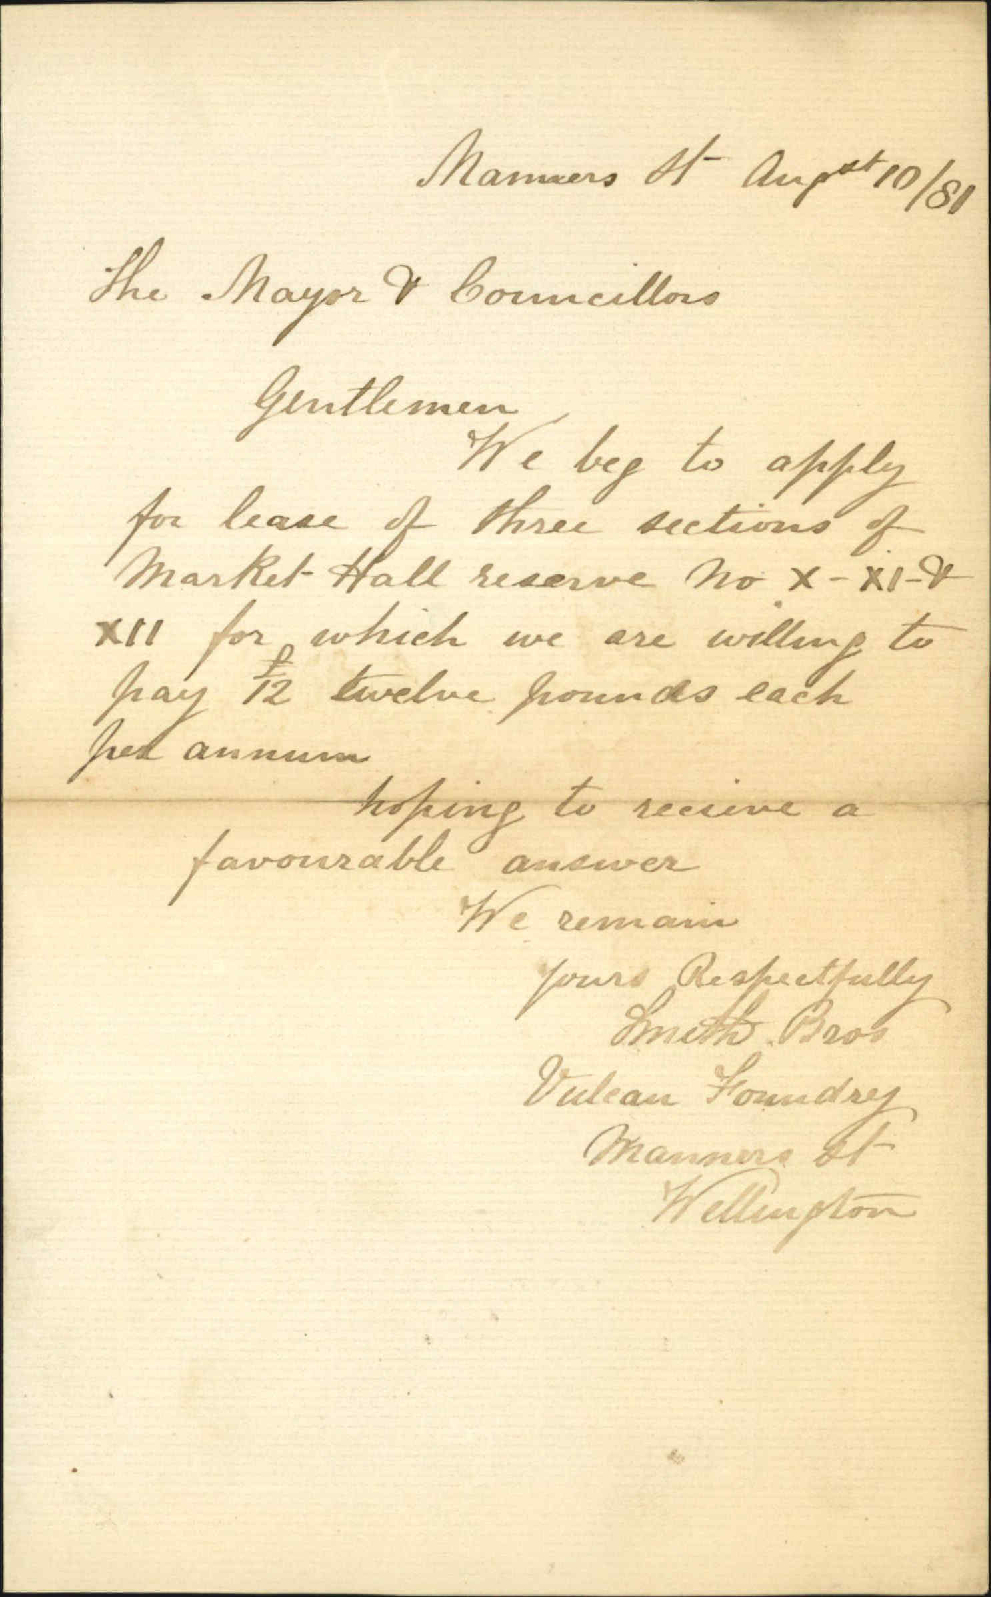 Manners St Augst 10/81
The Mayor & Councillors
Gentlemen
We beg to apply
for lease of three sections of
Market Hall reserve No X - XI - &
XII for which we are willing to
pay £12 twelve pounds each
per annum
hoping to recieve a
favourable answer
We remain
yours Respectfully
Smith Bros
Vulcan Foundry
Manners St
Wellington